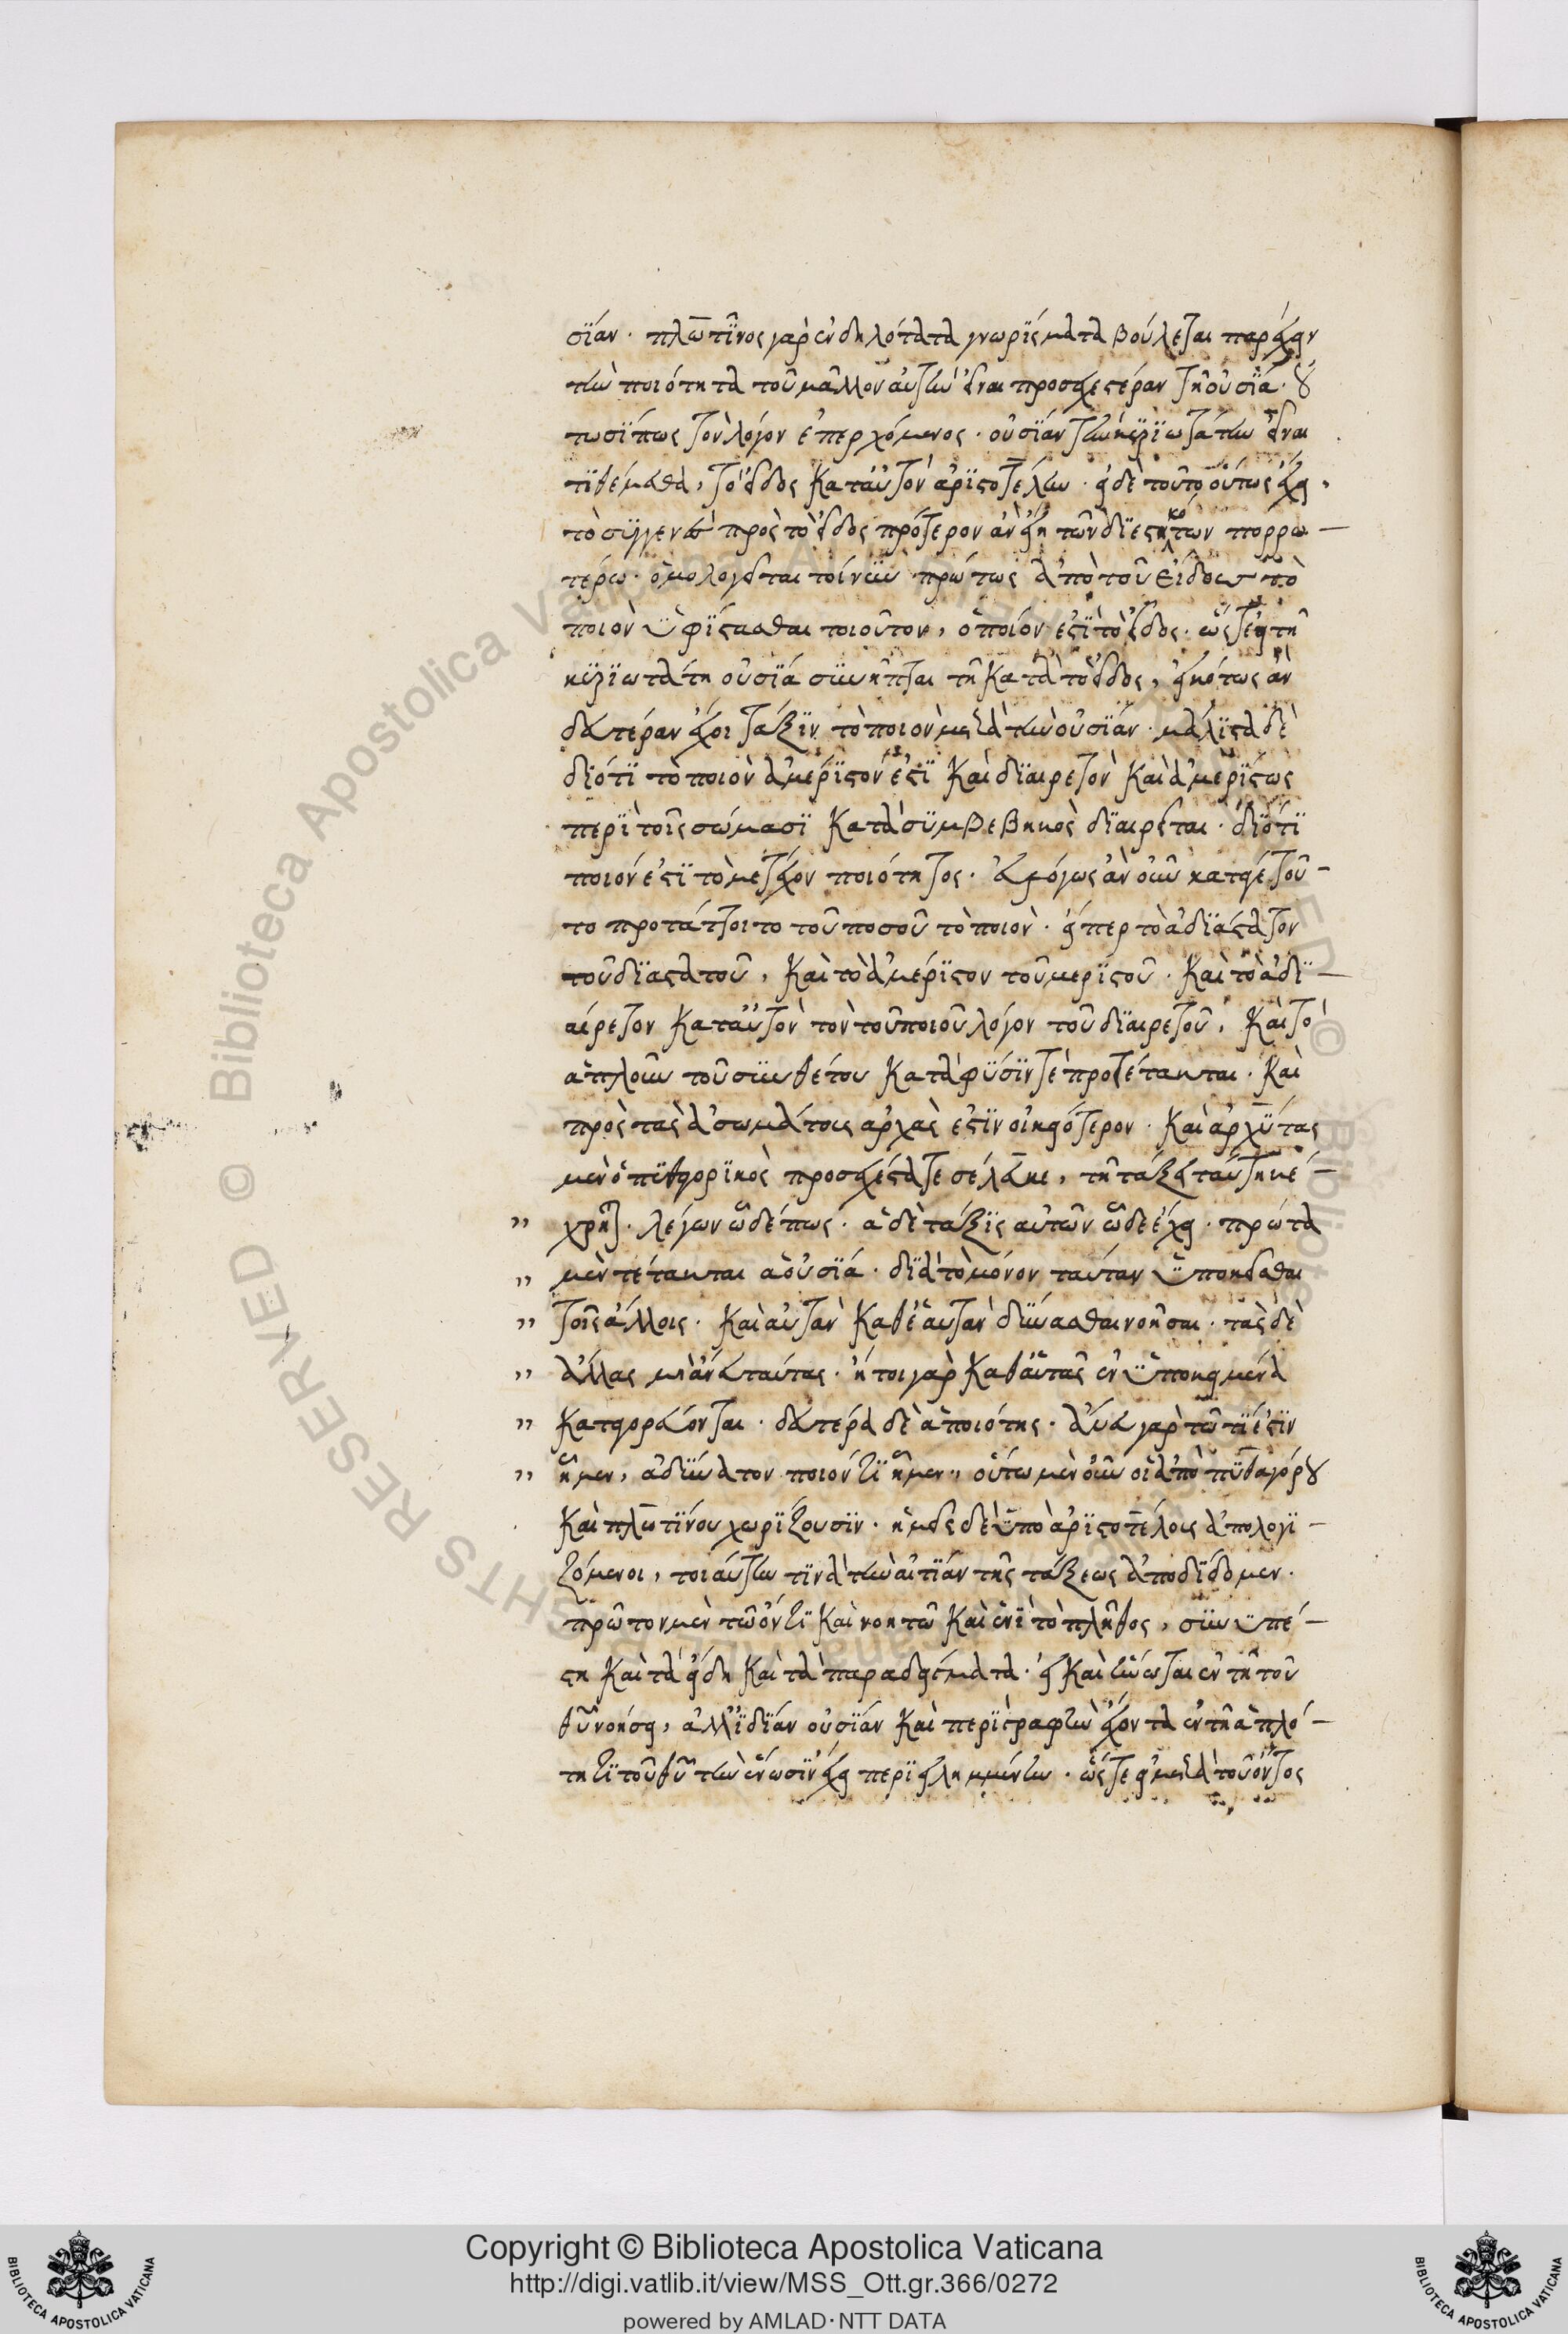 σϊάν· πλωτῖνος γὰρ εὐδηλότατα γνωρΐσματα βούλεται παρέχειν
τὴν ποιότητα τοῦ μᾶλλον αὐτὴν εἶναι προσεχεστέραν τῇ οὐσΐᾳ· οὑ
τωσΐ πως τὸν λόγον ἐπερχόμενος· οὐσΐαν τὴν κυρϊωτάτην εἶναι
τϊθέμεθα, τὸ εἶδος κατ' αὐτὸν ἀρϊστοτέλην· εἰ δὲ τοῦτο οὕτως ἔχει,
τὸ συγγενὲς πρὸς τὸ εἶδος πρότερον ἂν εἴη τῶν διεστηκότων πορρω–
τέρω· ὁμολογεῖται τοίνυν πρώτως ἀπὸ τοῦ εἴδους τὸ
ποιὸν ὑφΐστασθαι τοιοῦτον, ὁποῖον ἐστϊ τὸ εἶδος· ὥστε εἰ τῇ
κυρϊωτάτῃ οὐσΐᾳ συνῆπται τῇ κατὰ τὸ εἶδος, εἰκότως ἂν
δευτέραν ἔχοι τάξϊν τὸ ποιὸν μετὰ τὴν οὐσΐαν· μάλϊστα δὲ
διότϊ τὸ ποιὸν ἀμέρϊστόν ἐστϊ καὶ ἀδϊαίρετον καὶ ἀμερΐστως
περὶ τοῖς σώμασϊ κατὰ συμβεβηκὸς δϊαιρεῖται· διότϊ
ποιόν ἐστϊ τὸ μετέχον ποιότητος· εὐλόγως ἂν οὖν κατὰ τοῦ–
το προτάττοιτο τοῦ ποσοῦ τὸ ποιὸν· εἴπερ τὸ ἀδϊάστατον
τοῦ δϊαστατοῦ, καὶ τὸ ἀμέρϊστον τοῦ μερϊστοῦ· καὶ τὸ ἀδϊ–
αίρετον κατ' αὐτὸν τὸν τοῦ ποιοῦ λόγον τοῦ δϊαιρετοῦ, καὶ τὸ
ἁπλοῦν τοῦ συνθέτου κατὰ φύσϊν τε προτέτακται· καὶ
πρὸς τὰς ἀσωμάτους ἀρχὰς ἐστϊν οἰκειότερον· καὶ ἀρχύτας
μὲν ὁ πυθαγορϊκὸς προσεχέστατα τετέλεκε, τῇ τάξει ταύτῃ κέ–
χρηται· λέγων ὧδέ πως· ἁ δὲ τάξϊς αὐτῶν ὧδε ἔχει· πρώτα
μὲν τέτακται ἁ οὐσΐα· δϊὰ τὸ μόνον ταύταν ὑποκεῖσθαι
τοῖς ἄλλοις· καὶ αὐτὰν καθ' ἑαυτὰν δύνασθαι νοῆσαι· τὰς δὲ
ἄλλας μὴ ἄνευ ταύτας· ἤτοι γὰρ καθ' αὑτᾶς ἐν ὑποκειμένᾳ
κατηγορεύονται· δευτέρα δὲ ἁ ποιότης· ἄνευ γὰρ τῶ τϊ ἐστϊν
ἦμεν, ἀδύνατον ποιόν τϊ ἦμεν, οὕτω μὲν οὖν οἱ ἀπὸ πυθαγόρου
καὶ πλωτΐνου χωρΐζουσϊν· ἡμεῖς δὲ ὑπὸ ἀρϊστοτέλους ἀπολογϊ–
ζόμενοι, τοιαύτην τϊνὰ τὴν αἰτΐαν τῆς τάξεως ἀποδΐδομεν·
πρῶτον μὲν τῶ ὄντϊ καὶ νοητῶ καὶ ἑνϊ τὸ πλῆθος, συνυπέ–
στη καὶ τὰ εἴδη καὶ τὰ παραδείγματα· εἰ καὶ ἥνωται ἐν τῇ τοῦ
θεοῦ νοήσει, ἀλλ' ἰδΐαν οὐσΐαν καὶ περϊγραφὴν ἔχοντα ἐν τῇ ἁπλό–
τητϊ τοῦ θεοῦ τὴν ἕνωσϊν ἔχει περϊειλημμένην· ὥστε εἰ μετὰ τοῦ ὄντος
Copyright © Biblioteca Apostolica Vaticana
http://digi.vatlib.it/view/MSS_Ott.gr.366/0272
powered by AMLAD·NTT DATA